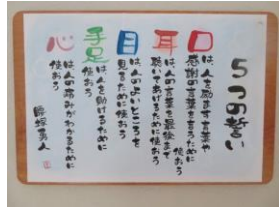 5つの誓い
口は、人を励ます言葉や
感謝の言葉を言うために使おう
耳は、人の言葉を最後まで
聴いてあげるために使おう
目は、人のよいところを
見るために使おう
手足は、人を助けるために
使おう
心は、人の痛みがわかるために
使おう
腰塚勇人